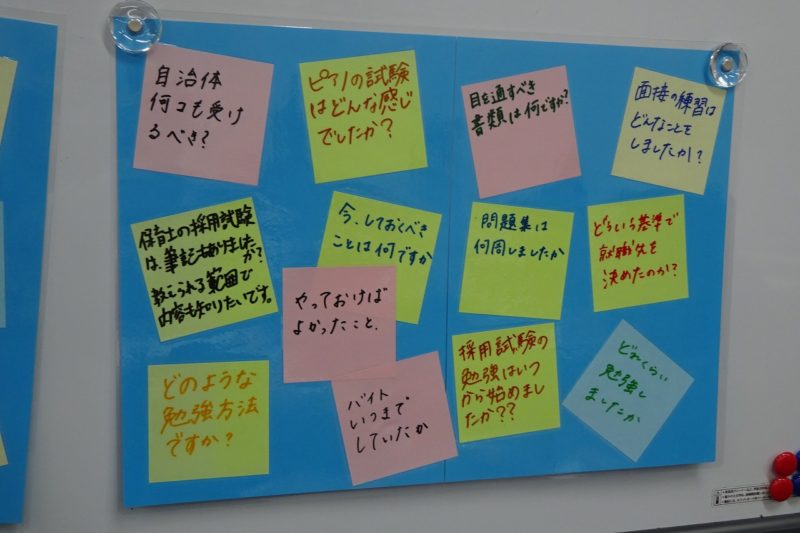 自治体
何コも受け
るべき?
ピアノの試験
はどんな感じ
でしたか?
目を通すべき
書類は何ですか?
面接の練習は
どんなことを
しましたか?
保育士の採用試験
は、筆記もありましたか?
教えられる範囲で
内容も知りたいです。
今、しておくべき
ことは何ですか
問題集は
何周しましたか
どういう基準で
就職先を
決めたのか?
やっておけば
よかったこと、
どのような
勉強方法
ですか?
バイト
いつまで
していたか
採用試験の
勉強はいつ
から始めまし
たか??
どれくらい
勉強し
ましたか